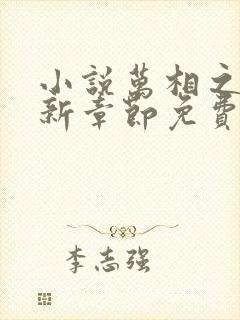 小説萬相之
新章節免費
李志強